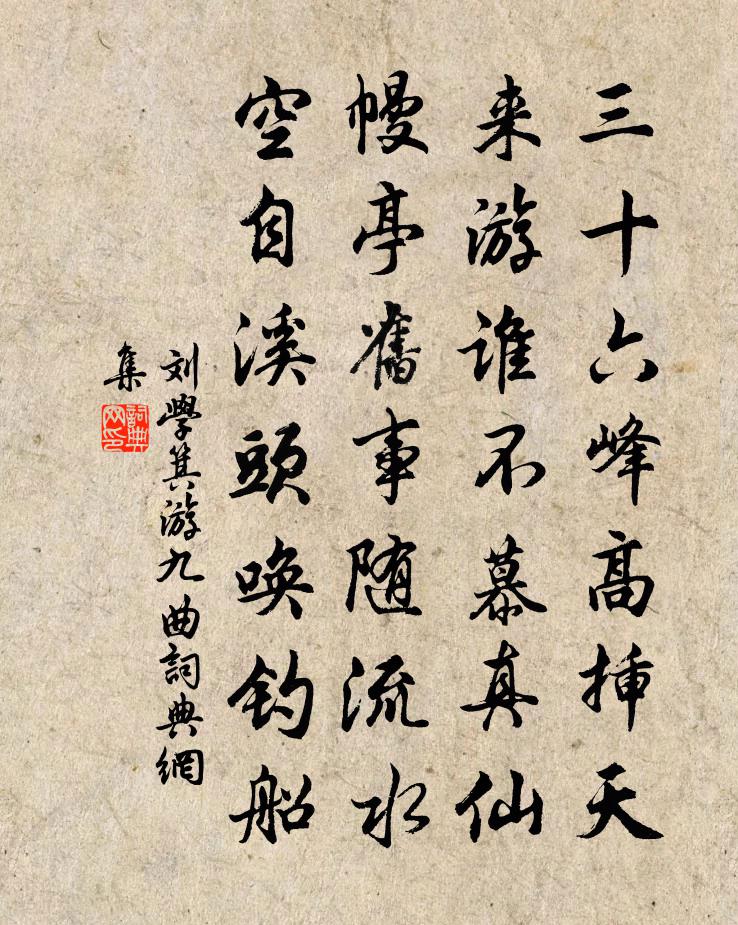 三十六峰高插天
来游谁不慕真仙
幔亭舊事随流水
空自溪頭唤钓船
刘學箕游九曲詞典網
集
詞典
网印